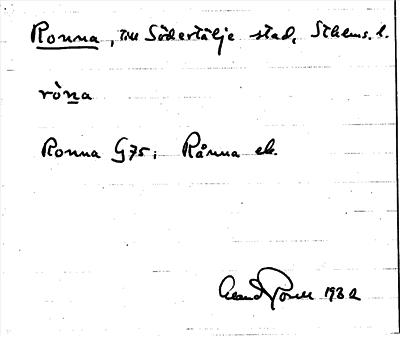 Ronna, till Södertälje stad, Sthlms. l.
ròna
Ronna G75; Rånna ek.
1932